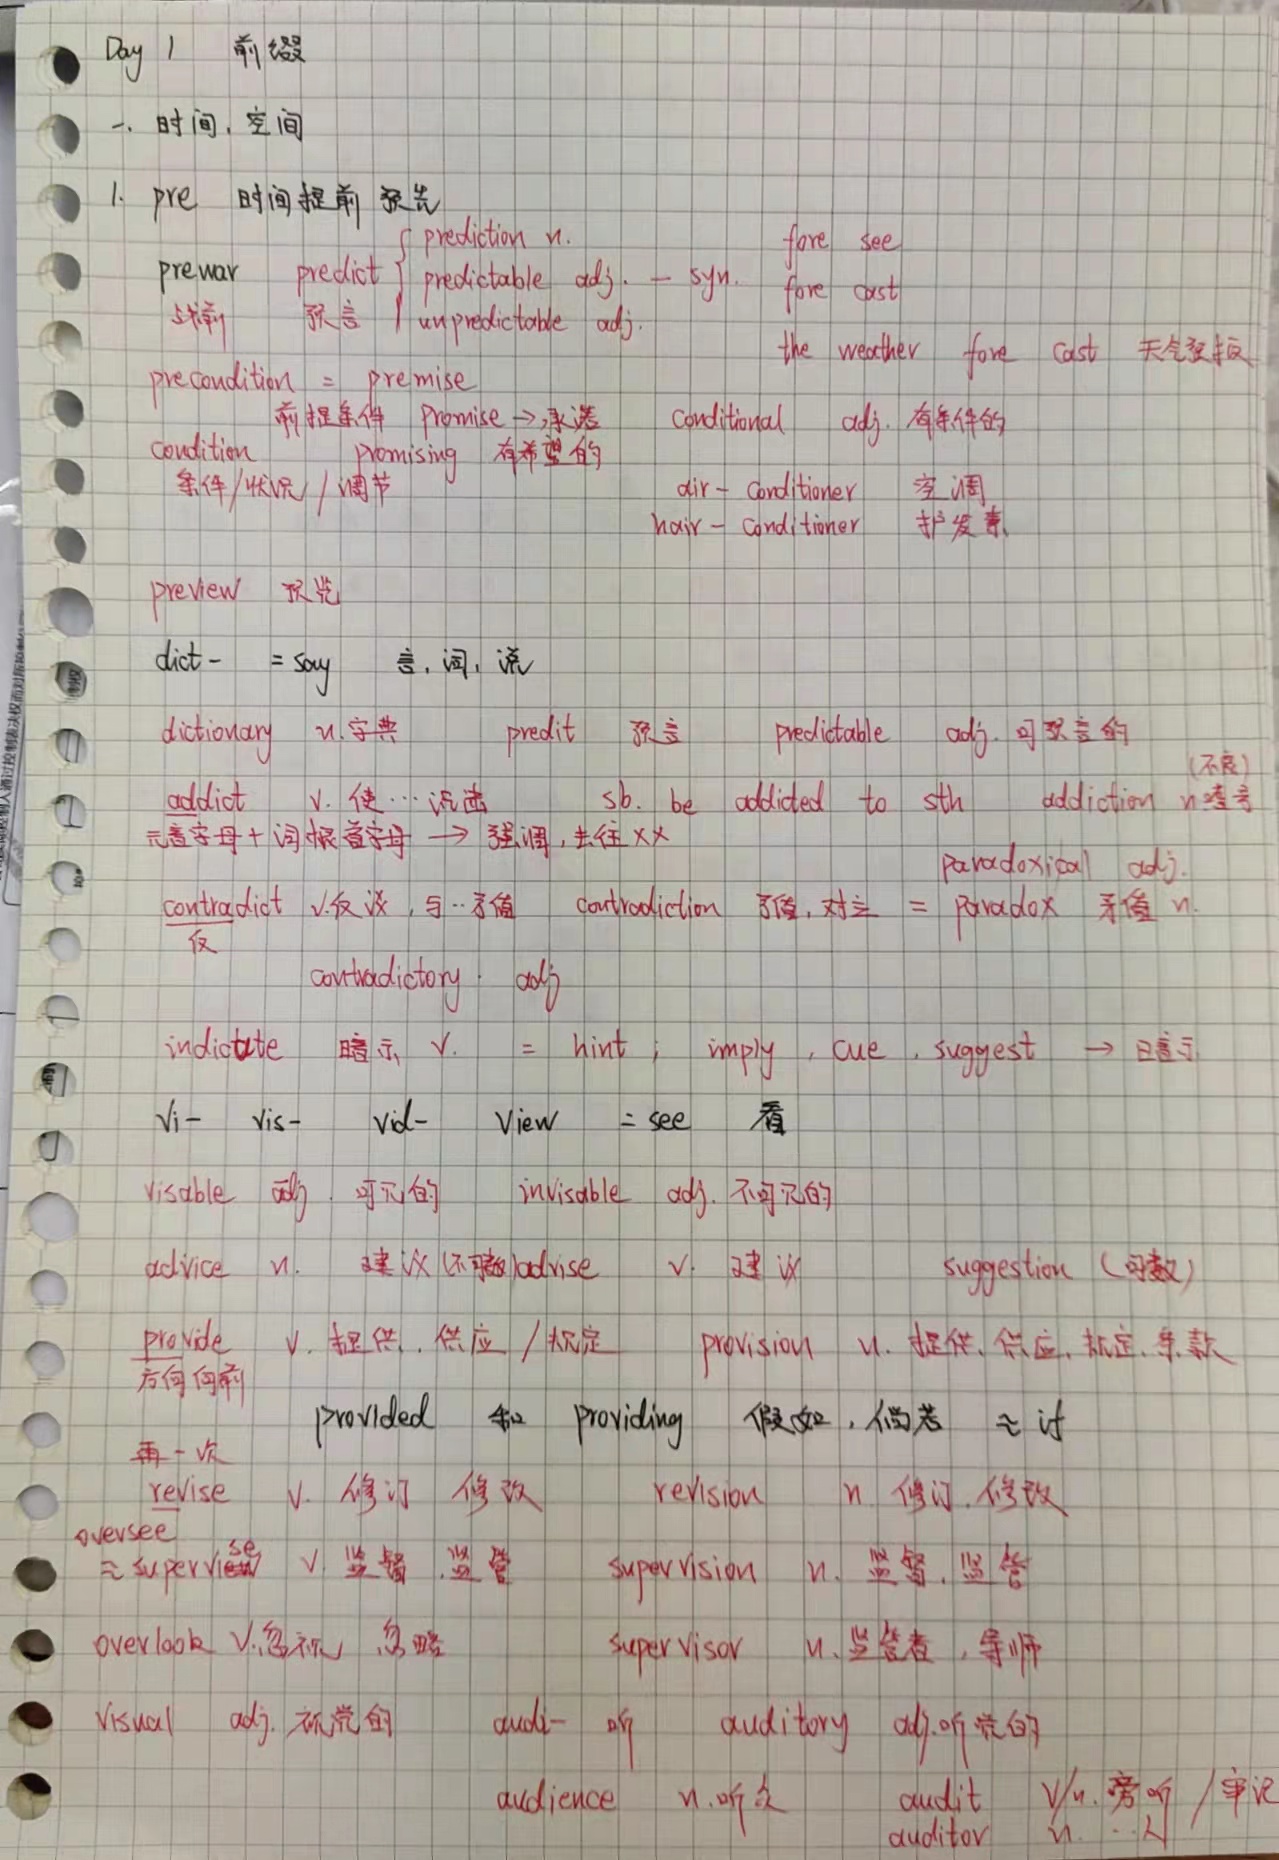 Day 1 前缀
一. 时间、空间
1. pre 时间提前 预先
prediction n. fore see
prewar predict predictable adj. — syn. fore cast
战前 预言 unpredictable adj.
the weather fore cast 天气预报
precondition = premise
前提条件 promise → 承诺 conditional adj. 有条件的
condition promising 有希望的
条件/状况/调节 air-conditioner 空调
hair-conditioner 护发素
preview 预览
dict- = say 言, 词, 说
dictionary n. 字典 predit 预言 predictable adj. 可预言的
(不良)
addict v. 使…沉迷 sb. be addicted to sth addiction n 嗜好
元音字母+词根首字母 → 强调, 去往xx
paradoxical adj.
contradict v. 反议, 与…矛盾 contradiction 矛盾, 对立 = paradox 矛盾 n.
反
contradictory adj
indictate 暗示 v. = hint ; imply , cue , suggest → 暗示
vi- vis- vid- view = see 看
visable adj. 可见的 invisable adj. 不可见的
advice n. 建议(不可数) advise v. 建议 suggestion (可数)
provide v. 提供, 供应/规定 provision n. 提供、供应、规定、条款
方向向前
provided 和 providing 假如, 倘若 ≈ if
再一次
revise v. 修订 修改 revision n. 修订. 修改
oversee
≈ supervise v. 监督. 监管 supervision n. 监督. 监管
overlook v. 忽视 忽略 supervisor n. 监管者, 导师
visual adj. 视觉的 audi- 听 auditory adj. 听觉的
audience n. 听众 audit v/n. 旁听/审记
auditor n. …人